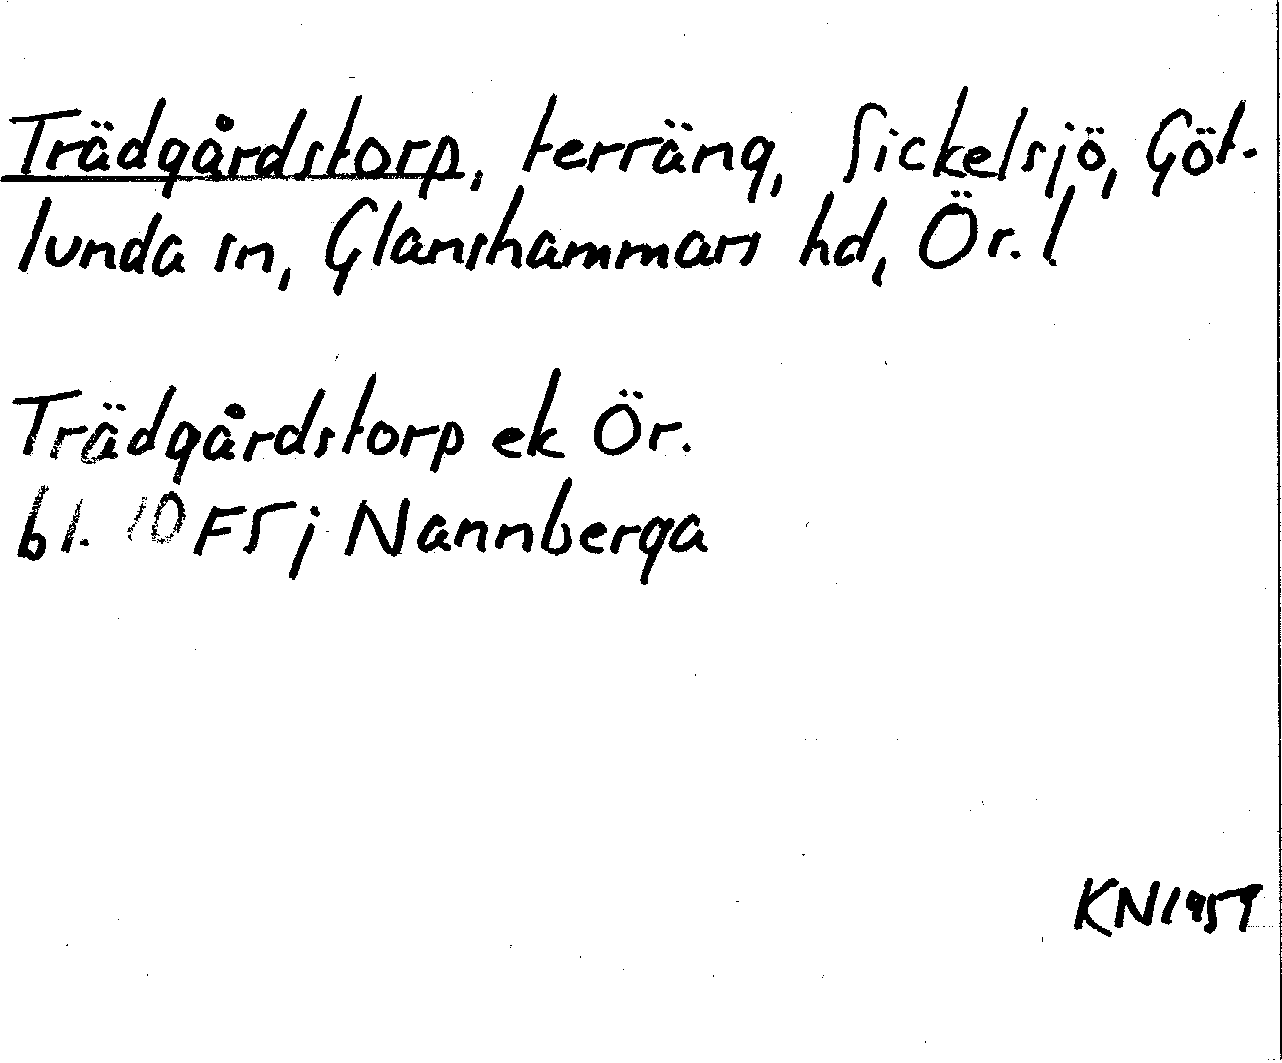 Trädgårdstorp, terräng, Sickelsjö, Göt-
lunda sn, Glanshammars hd, Ör. l
Trädgårdstorp ek Ör.
bl. 10 F5j Nannberga
KN1959